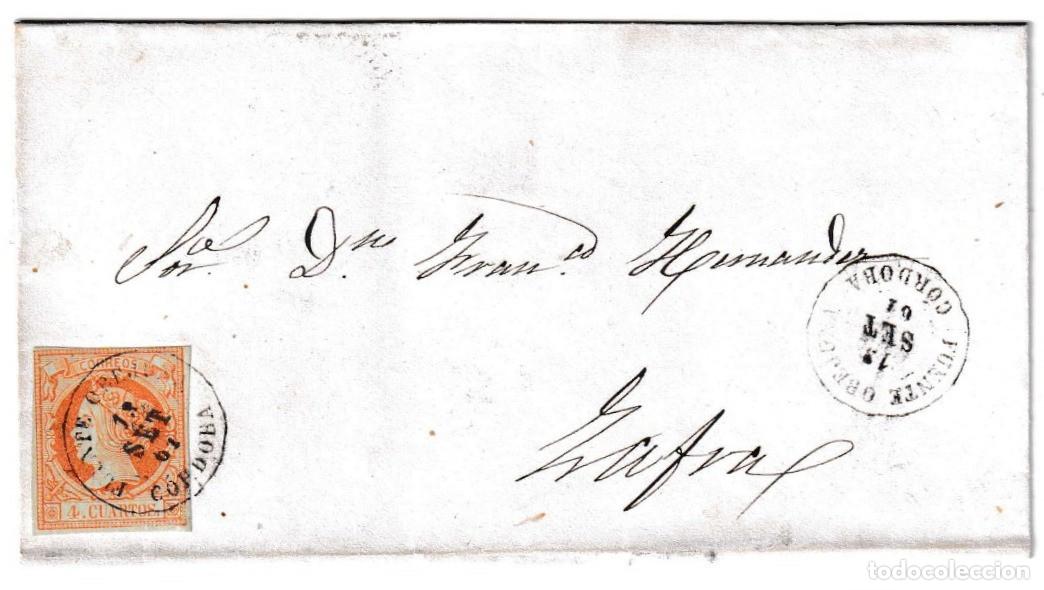 Sor. Dn. Franco. Hernandez
Zafra
CORREOS
4. CUARTOS
FUENTE OBEJUNA
12
SET
61
CORDOBA
FUENTE OBEJUNA
12
SET
61
CORDOBA
todocoleccion